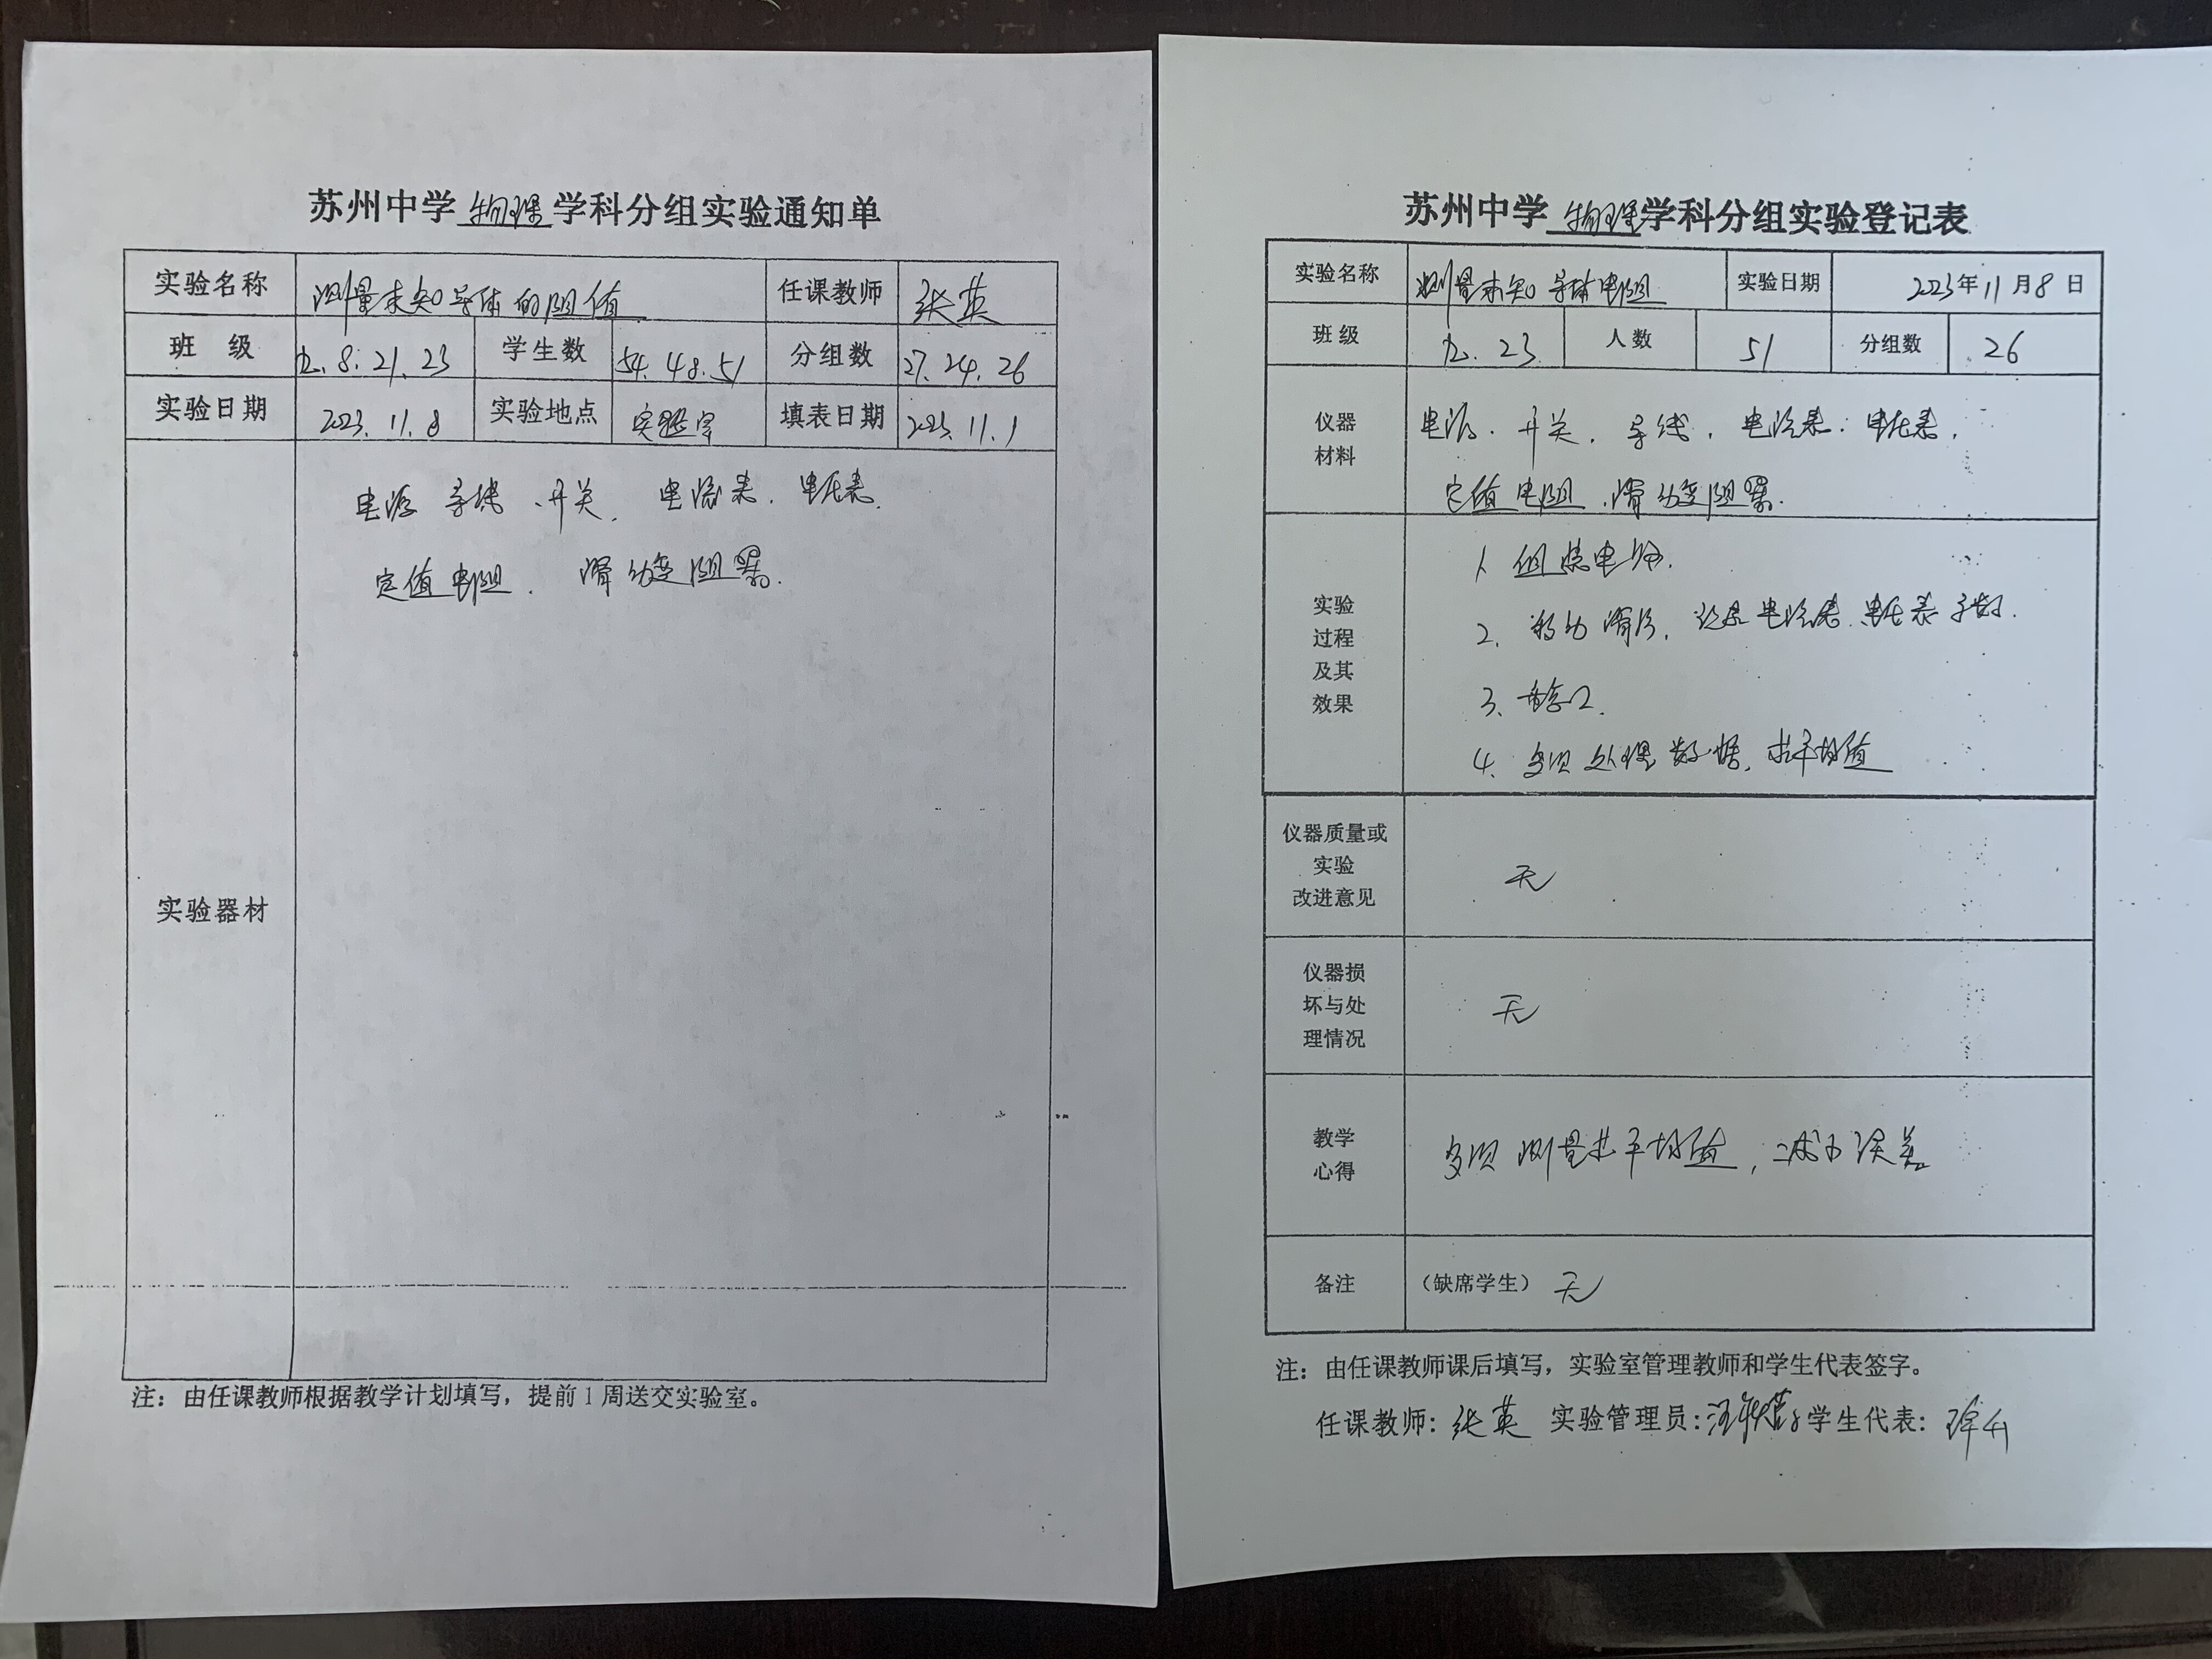 苏州中学 物理 学科分组实验通知单
实验名称 测量未知导体的阻值 任课教师 张英
班 级 九.8.21.23 学生数 54.48.51 分组数 27.24.26
实验日期 2023.11.8 实验地点 实验室 填表日期 2023.11.1
实验器材
电源 导线、开关、电流表、电压表、
定值电阻、滑动变阻器。
注：由任课教师根据教学计划填写，提前1周送交实验室。
苏州中学 物理 学科分组实验登记表
实验名称 测量未知导体电阻 实验日期 2023年11月8日
班级 九.23 人数 51 分组数 26
仪器
材料
电源、开关、导线、电流表、电压表、
定值电阻、滑动变阻器。
实验
过程
及其
效果
1、组装电路.
2、移动滑片，记录电流表、电压表示数.
3、重复2.
4、多次处理数据，求平均值
仪器质量或
实验
改进意见
无
仪器损
坏与处
理情况
无
教学
心得
多次测量求平均值，减小误差
备注 （缺席学生） 无
注：由任课教师课后填写，实验室管理教师和学生代表签字。
任课教师：张英 实验管理员： 学生代表：